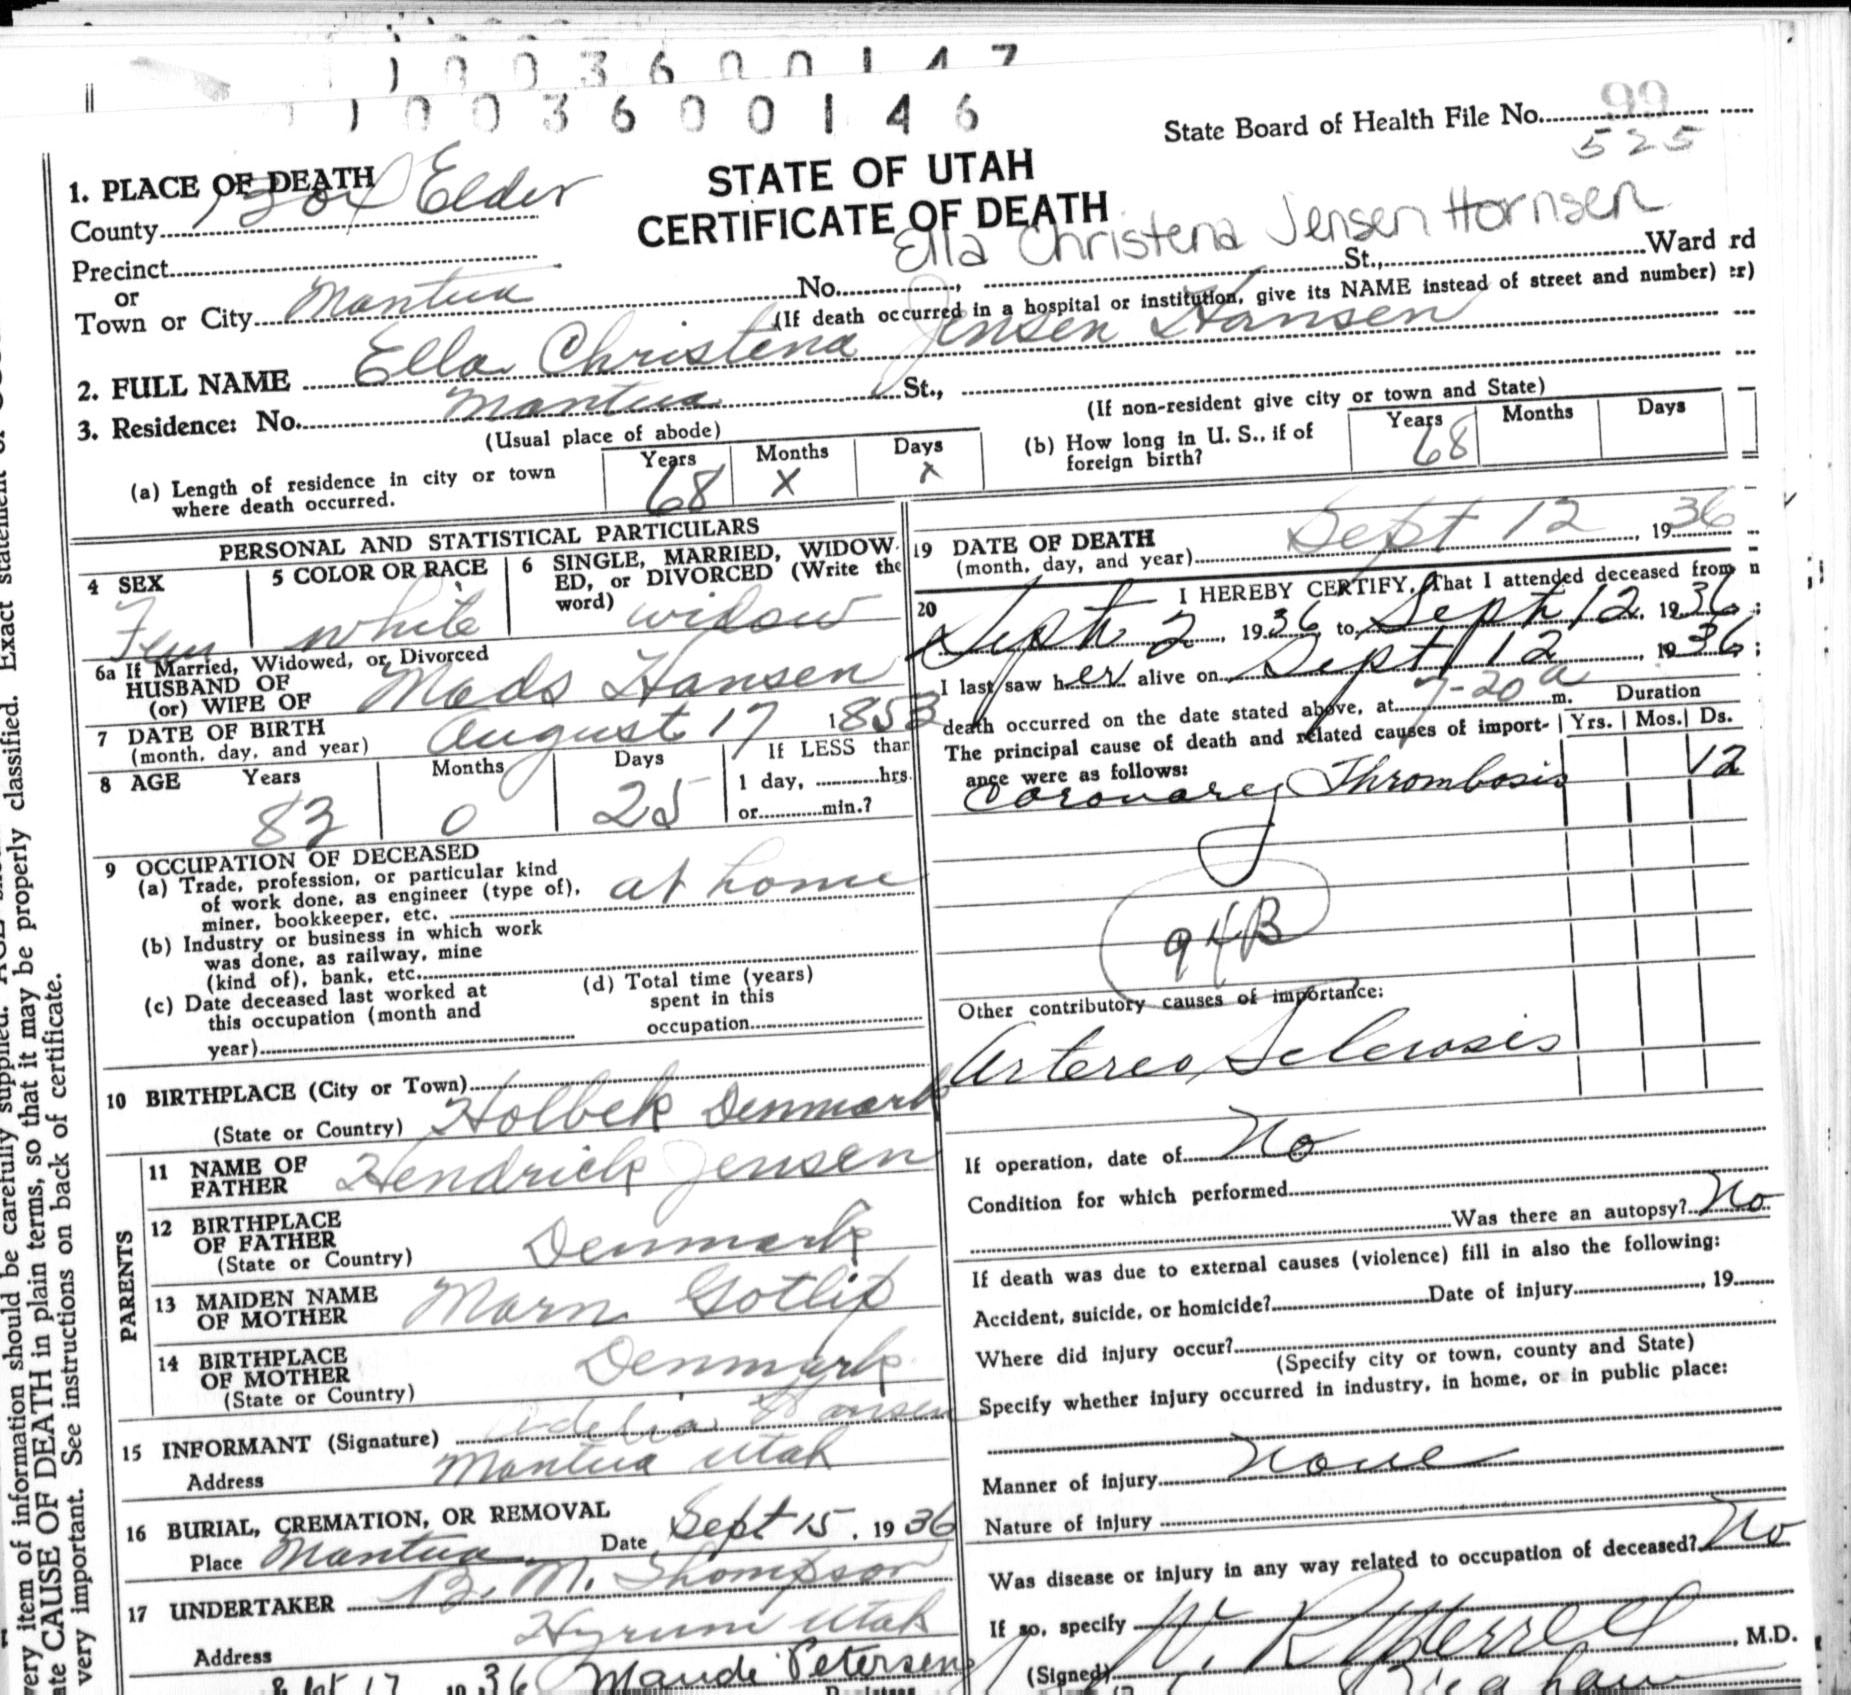 1003600147
1003600146
State Board of Health File No. 99
525
STATE OF UTAH
CERTIFICATE OF DEATH
Ella Christena Jensen Hornsen
1. PLACE OF DEATH
County Box Elder
Precinct
or
Town or City Mantua No. , St., Ward rd
(If death occurred in a hospital or institution, give its NAME instead of street and number) er)
2. FULL NAME Ella Christena Jensen Hansen
3. Residence: No. Mantua St.,
(Usual place of abode) (If non-resident give city or town and State)
(a) Length of residence in city or town where death occurred. Years 68 Months x Days x
(b) How long in U. S., if of foreign birth? Years 68 Months Days
PERSONAL AND STATISTICAL PARTICULARS
4 SEX Fem
5 COLOR OR RACE white
6 SINGLE, MARRIED, WIDOW-
ED, or DIVORCED (Write the
word) widow
6a If Married, Widowed, or Divorced
HUSBAND OF
(or) WIFE OF Mads Hansen
7 DATE OF BIRTH
(month, day, and year) August 17 1853
8 AGE Years 83 Months 0 Days 25 If LESS than
1 day, hrs.
or min.?
9 OCCUPATION OF DECEASED
(a) Trade, profession, or particular kind
of work done, as engineer (type of),
miner, bookkeeper, etc. at home
(b) Industry or business in which work
was done, as railway, mine
(kind of), bank, etc.
(c) Date deceased last worked at
this occupation (month and
year)
(d) Total time (years)
spent in this
occupation
10 BIRTHPLACE (City or Town)
(State or Country) Holbek Denmark
PARENTS
11 NAME OF
FATHER Hendrick Jensen
12 BIRTHPLACE
OF FATHER
(State or Country) Denmark
13 MAIDEN NAME
OF MOTHER Marn Gotlip
14 BIRTHPLACE
OF MOTHER
(State or Country) Denmark
15 INFORMANT (Signature) Adelia Hansen
Address Mantua Utah
16 BURIAL, CREMATION, OR REMOVAL
Place Mantua Date Sept 15, 1936
17 UNDERTAKER B. M. Thompson
Address Hyrum Utah
Sept 17 1936 Maude Petersen
19 DATE OF DEATH
(month, day, and year) Sept 12, 1936
20 I HEREBY CERTIFY, That I attended deceased from n
Sept 2, 1936, to Sept 12, 1936;
I last saw her alive on Sept 12, 1936;
death occurred on the date stated above, at 7-20 a m.
The principal cause of death and related causes of import-
ance were as follows:
Duration
Yrs. Mos. Ds.
Coronary Thrombosis 12
94B
Other contributory causes of importance:
Arterio Sclerosis
If operation, date of No
Condition for which performed
Was there an autopsy? No
If death was due to external causes (violence) fill in also the following:
Accident, suicide, or homicide? Date of injury , 19
Where did injury occur?
(Specify city or town, county and State)
Specify whether injury occurred in industry, in home, or in public place:
Manner of injury None
Nature of injury
Was disease or injury in any way related to occupation of deceased? No
If so, specify
(Signed) W. R. Merrell, M.D.
Brigham
very item of information should be carefully supplied.
ate CAUSE OF DEATH in plain terms, so that it may be properly classified. Exact statement of
very important. See instructions on back of certificate.